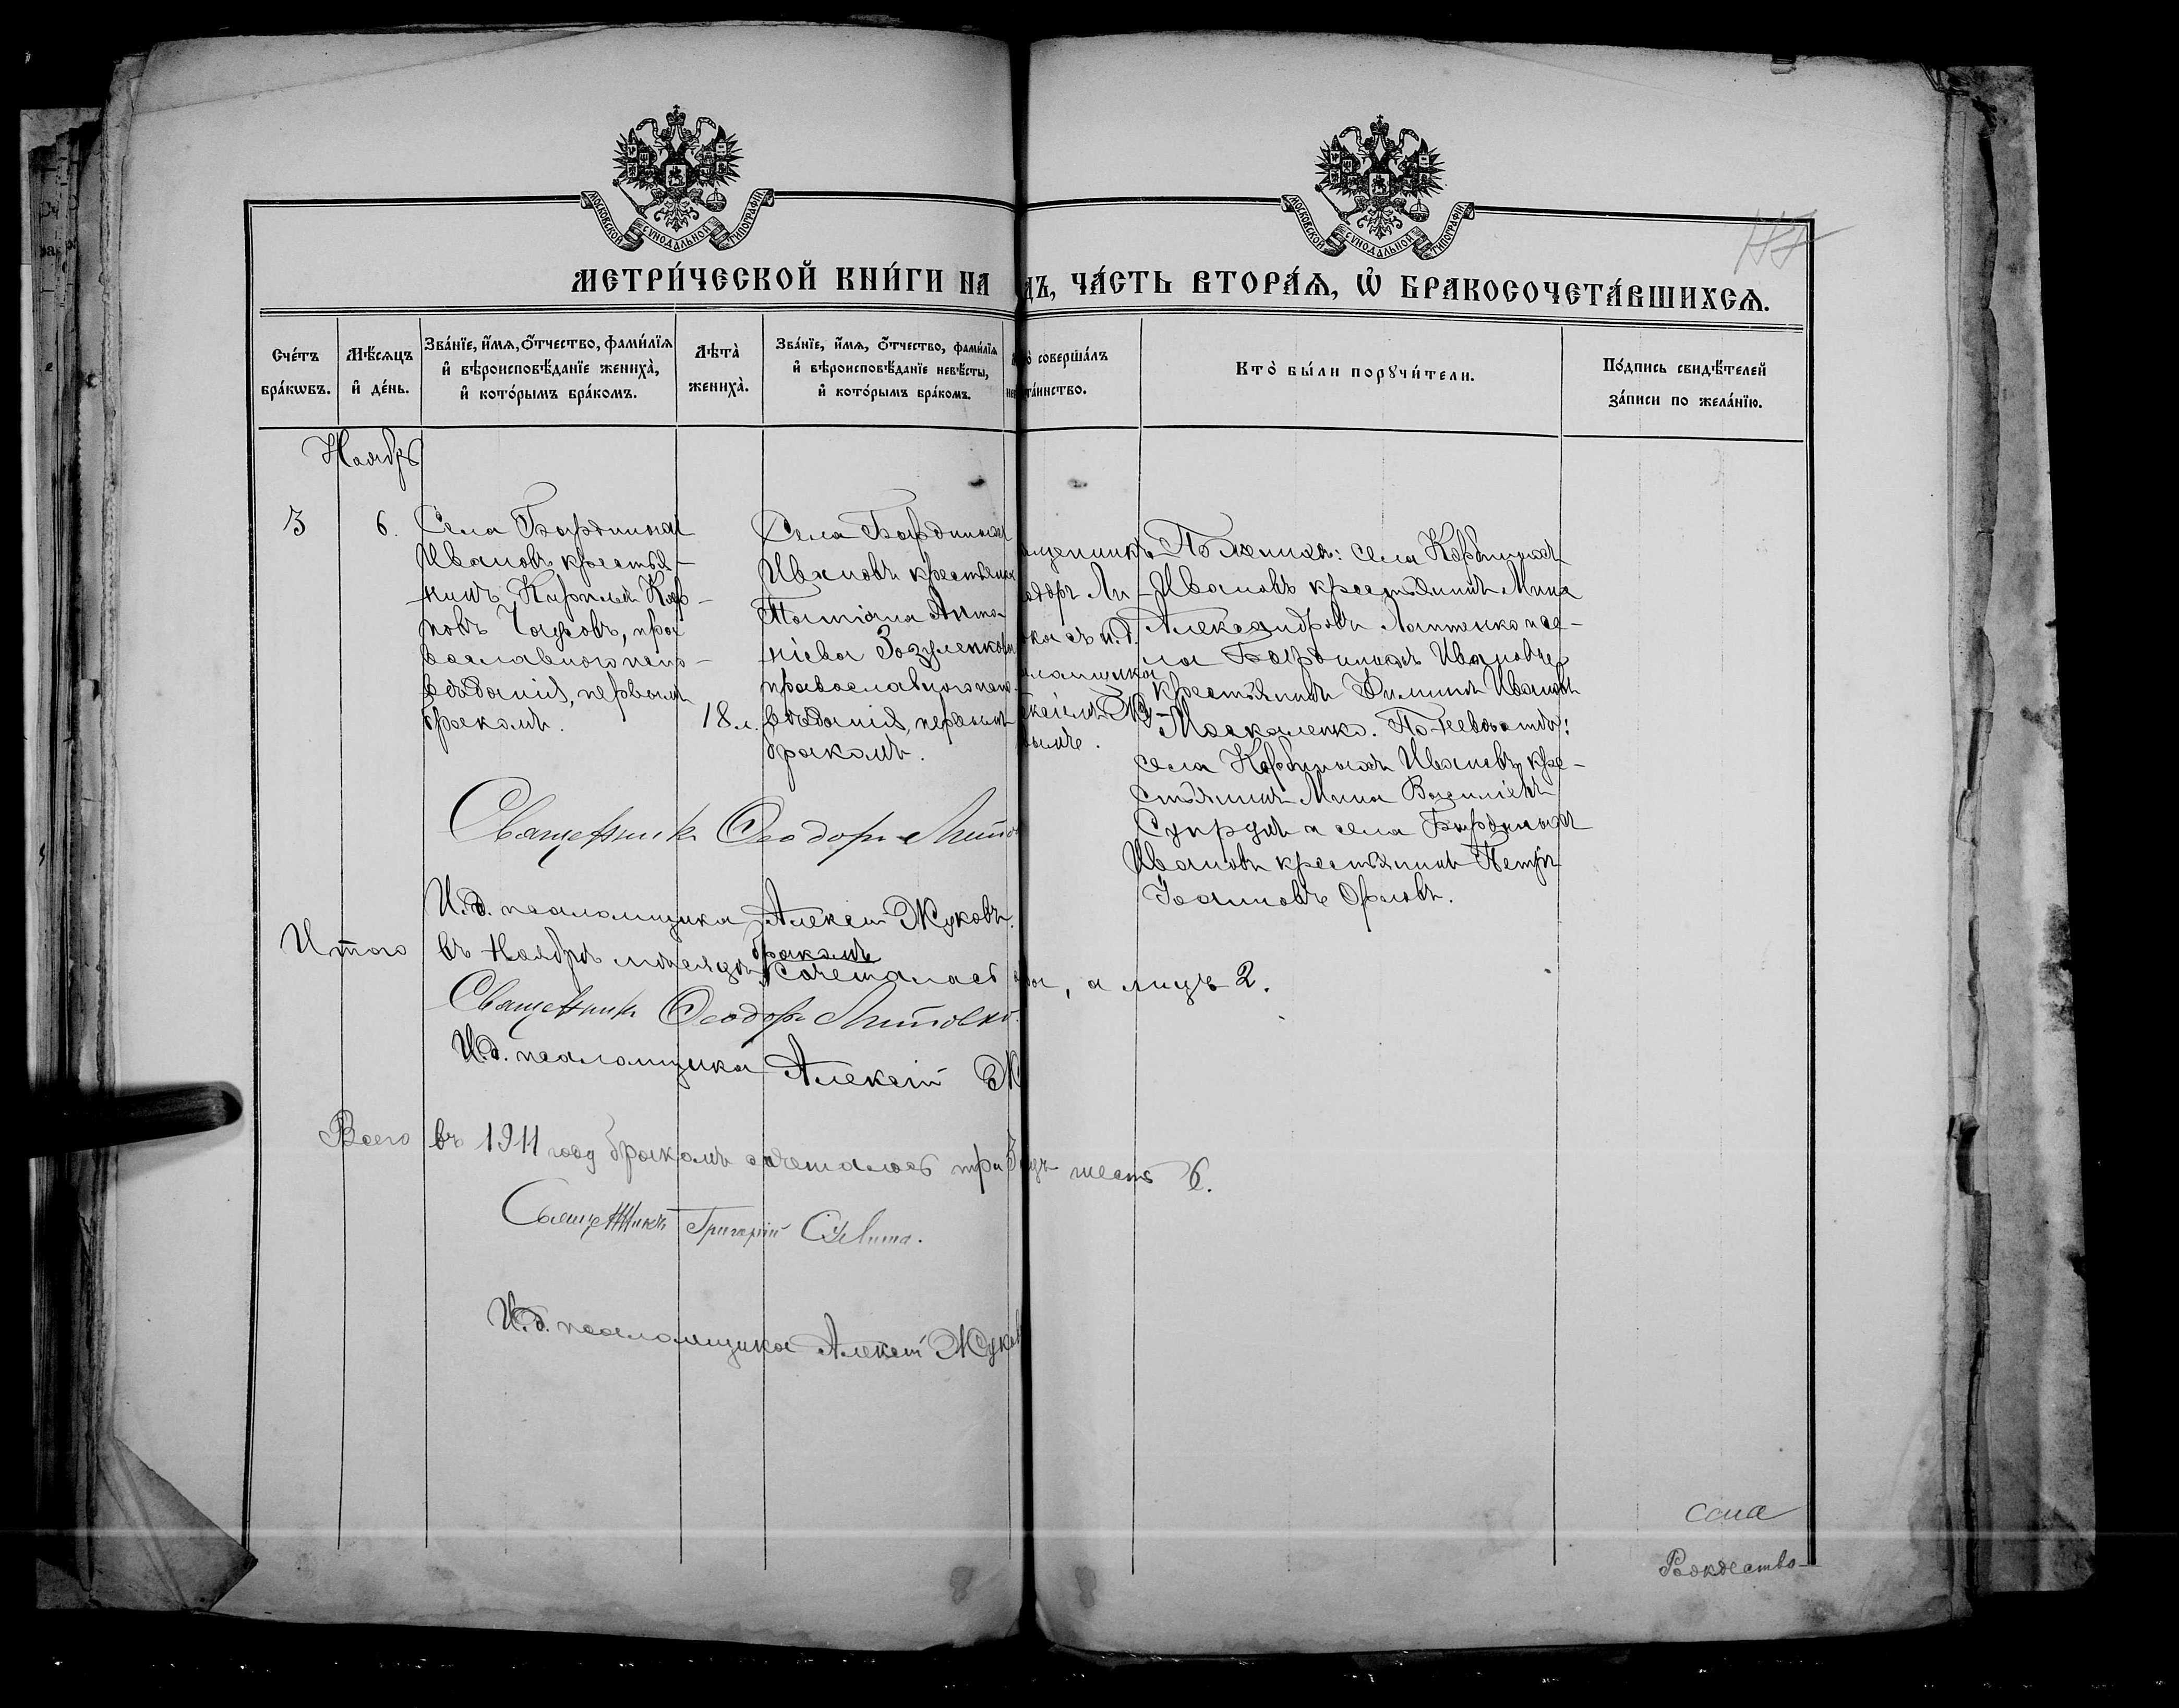 МОСКОВСКОЙ СѴНОДАЛЬНОЙ ТИПОГРАФІИ.
МОСКОВСКОЙ СѴНОДАЛЬНОЙ ТИПОГРАФІИ.
МЕТРИ́ЧЕСКОЙ КНИ́ГИ НА
ДЪ, ЧА́СТЬ ВТОРА́Ѧ, Ѽ БРАКОСОЧЕТА́ВШИХСѦ.
Сче́тъ
бра́кѡвъ.
Мѣ́сѧцъ
и҆ де́нь.
Зва́нїе, и҆́мѧ, ѻ҆́тчество, фами́лїѧ
и҆ вѣроисповѣ́данїе жениха̀,
и҆ кото́рымъ бра́комъ.
Лѣта̀
жениха̀.
Зва́нїе, и҆́мѧ, ѻ҆́тчество, фами́лїѧ
и҆ вѣроисповѣ́данїе невѣ́сты,
и҆ кото́рымъ бра́комъ.
о̀ соверша́лъ
та́инство.
Кто̀ бы́ли порꙋчи́тели.
По́дпись свидѣ́телей
за́писи по жела́нїю.
Ноябрь
3
6.
Села Бырдиныхъ
Ивановъ крестья-
нинъ Кирилъ Кар-
повъ Чаусовъ, пра-
вославного испо-
вѣданія, первымъ
бракомъ.
18 л.
Села Бырдиныхъ
Ивановъ крестьянка
Татіана Анто-
ніева Зозуленкова
православного испо-
вѣданія, первымъ
бракомъ.
ященникъ
одоръ Ли-
ка съ и.д.
аломщика
ексіемъ Жу-
вымъ.
По женихѣ: села
Ивановъ крестьянинъ Мина
Александровъ Лаптенко и се-
ла Бырдиныхъ Ивановъ
крестьянинъ Филиппъ Ивановъ
Москаленко. По невѣстѣ:
села Ивановъ кре-
стьянинъ Мина Василіевъ
Супрунъ и села Бырдиныхъ
Ивановъ крестьянинъ Петръ
Іоанновъ Орловъ.
Священникъ Ѳеодоръ Лито
И.д. псаломщика Алексѣй Жуковъ.
Итого въ Ноябрѣ мѣсяцѣ бракомъ сочеталась ра, а лицъ 2.
Священникъ Ѳеодоръ Литовко
И.д. псаломщика Алексій Ж
Всего въ 1911 году бракомъ сочеталось три 3 цъ шесть 6.
Священникъ Григорій
И.д. псаломщика Алексѣй Жуков
села
Рождество-